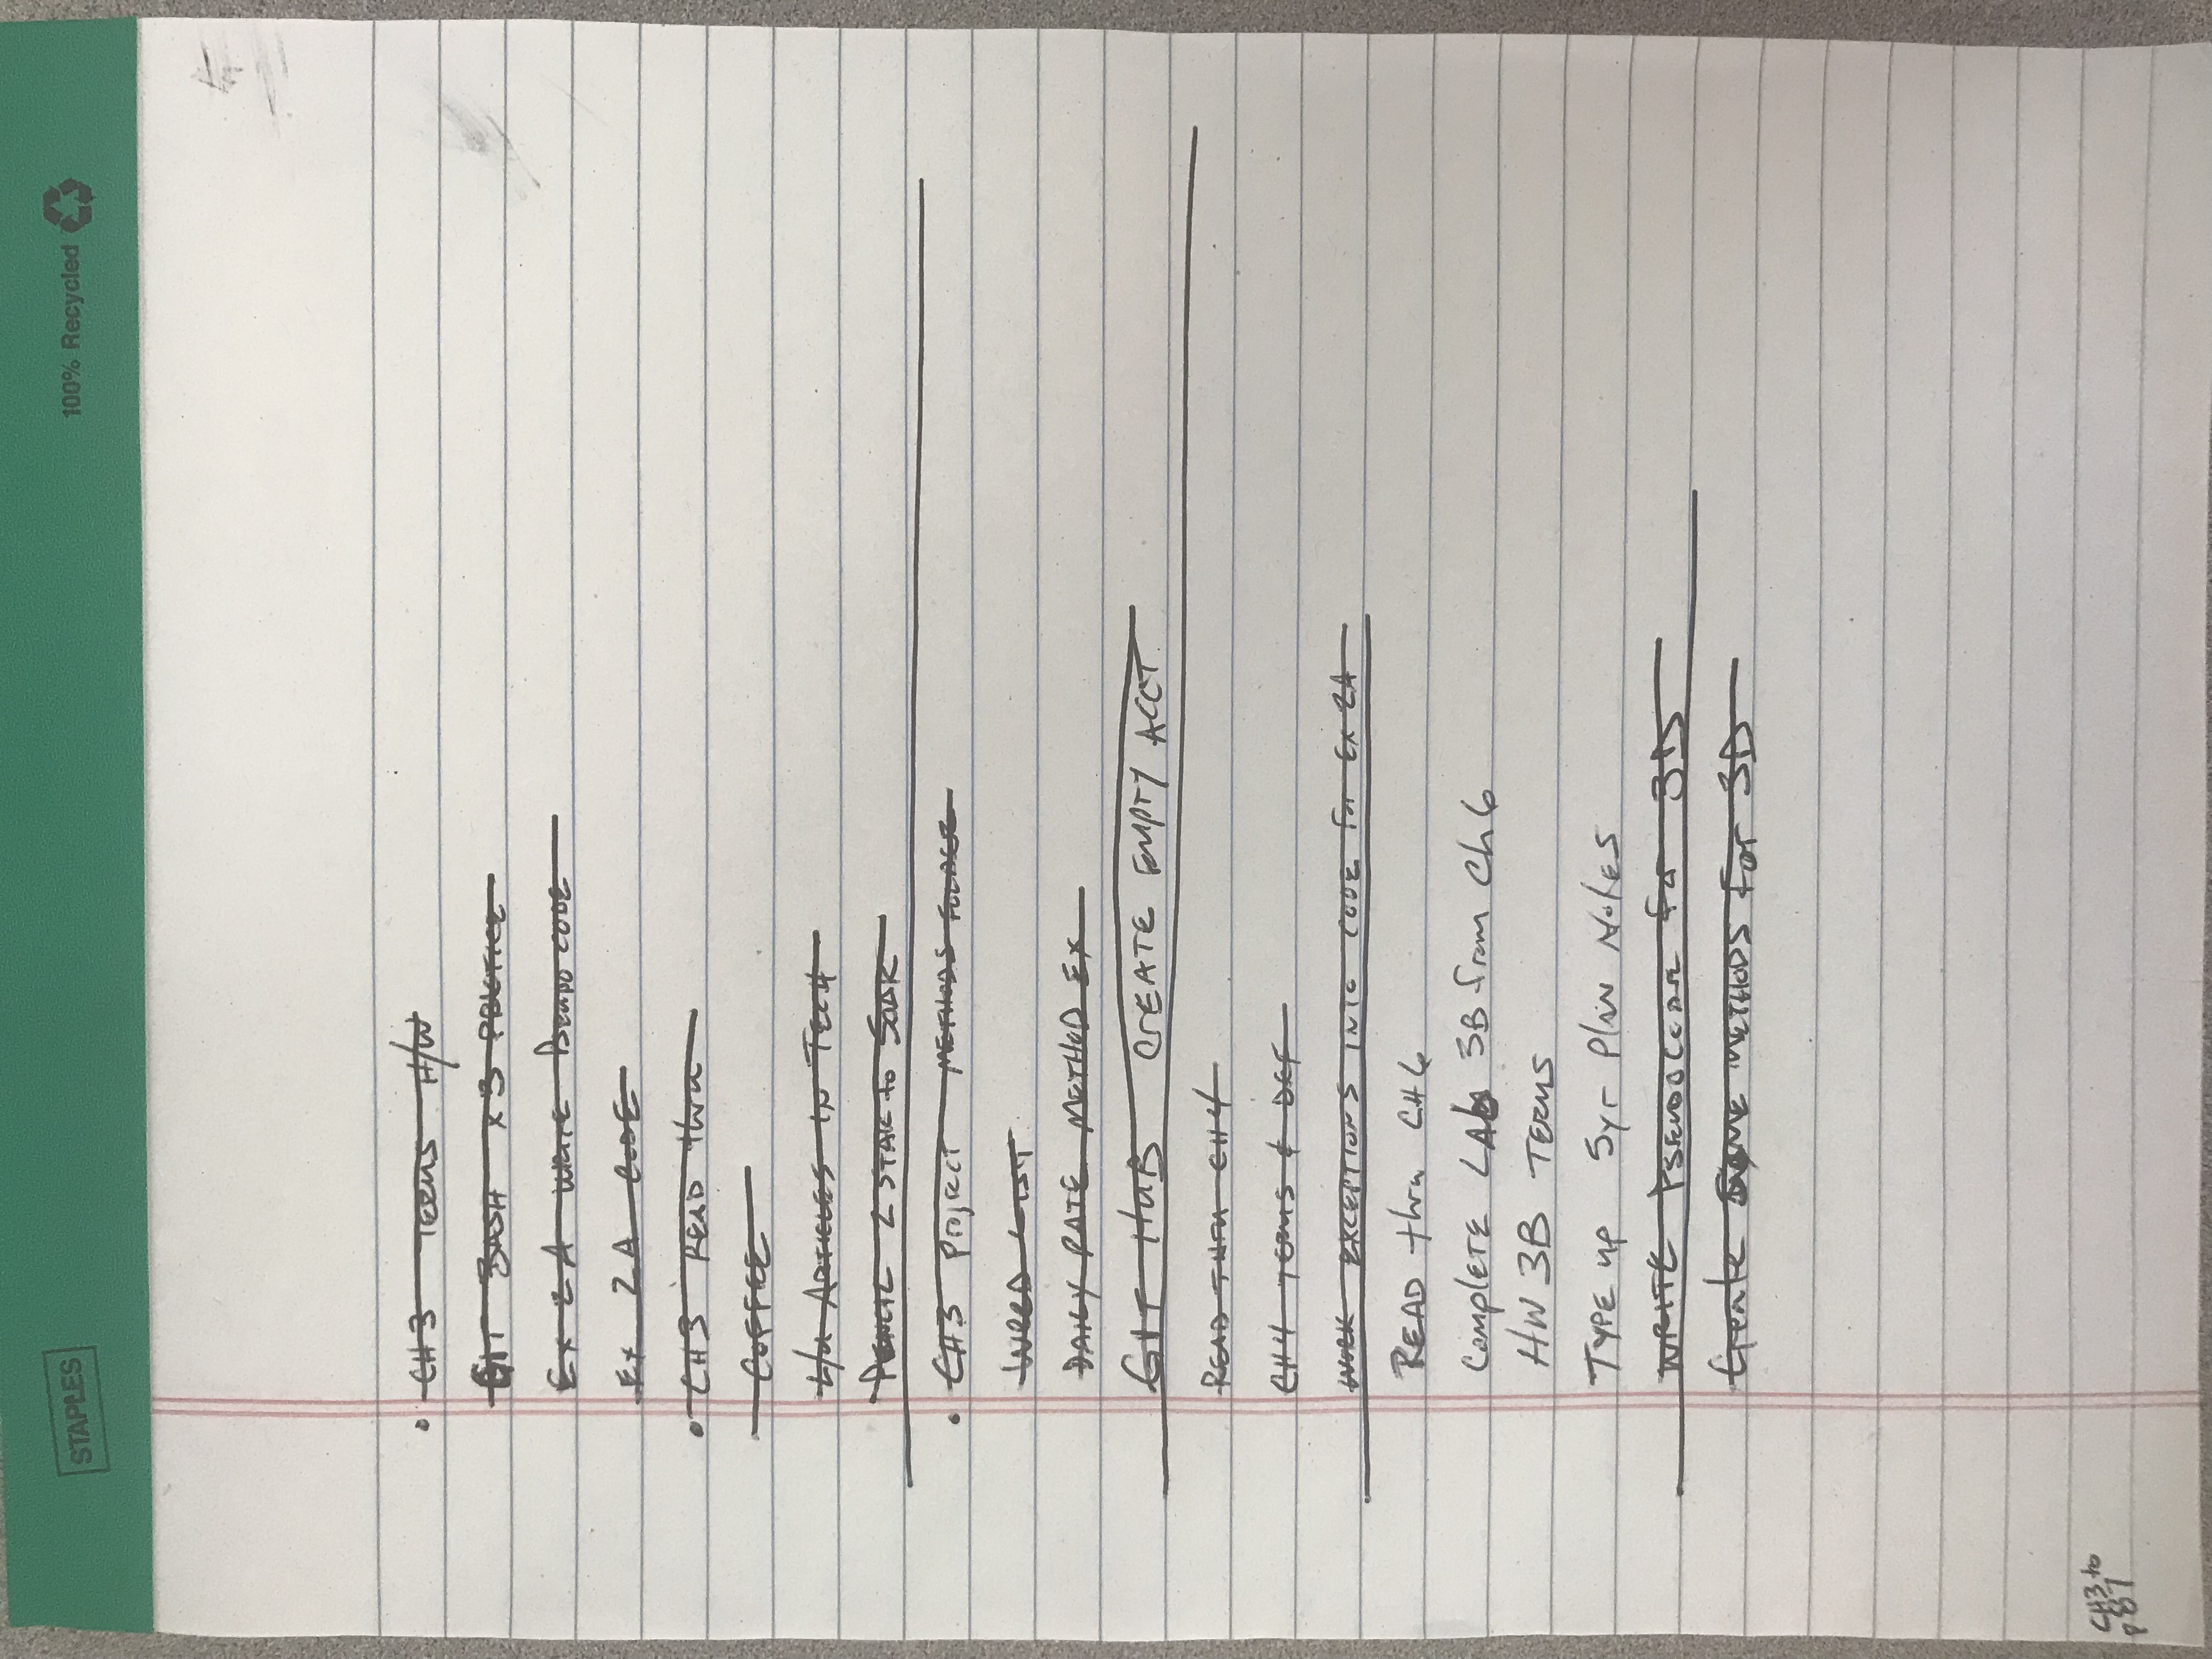 STAPLES
100% Recycled
• CH3 Terms H/W
GIT BASH x3 PRACTICE
Ex 2A WRITE Pseudo CODE
Ex 2A CODE
• CH3 READ thru
COFFEE
ARTICLES IN TECH
2 STAR to
• CH3 Project METHODS FOLDER
LIST
DAILY RATE METHOD EX
GIT HUB CREATE EMPTY ACCT
READ THRU CH4
CH4 TERMS & DEF
WORK EXCEPTIONS INTO CODE for EX 2A
READ thru CH6
Complete LAb 3B from Ch6
H/W 3B TERMS
Type up 5yr Plan Notes
WRITE Pseudocode for 3B
Create METHODS for 3B
CH3 to
p 87